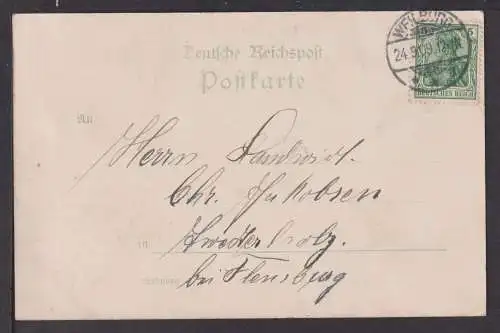 WEILBURG
5
24.9.09
DEUTSCHES REICH
Deutsche Reichspost
Postkarte
An
Herrn Landwirt
Chr. Jakobsen
in
bei Flensburg
Wohnung